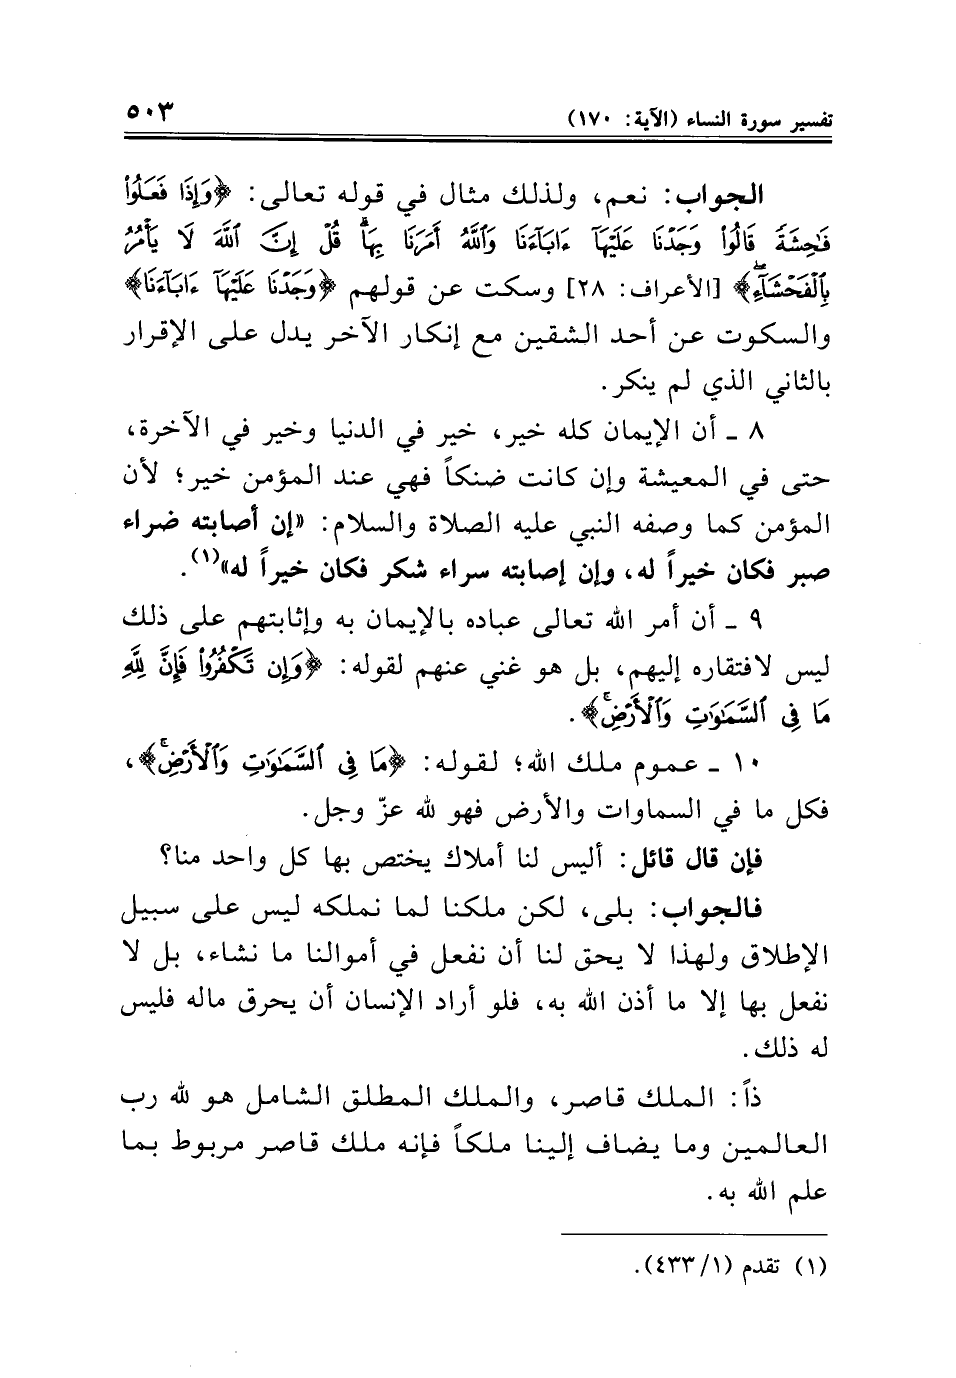 تفسير سورة النساء (الآية: ١٧٠) ٥٠٣
الجواب: نعم، ولذلك مثال في قوله تعالى: ﴿وَإِذَا فَعَلُوا۟
فَـٰحِشَةً قَالُوا۟ وَجَدْنَا عَلَيْهَآ ءَابَآءَنَا وَٱللَّهُ أَمَرَنَا بِهَا ۗ قُلْ إِنَّ ٱللَّهَ لَا يَأْمُرُ
بِٱلْفَحْشَآءِ ۖ﴾ [الأعراف: ٢٨] وسكت عن قولهم ﴿وَجَدْنَا عَلَيْهَآ ءَابَآءَنَا﴾
والسكوت عن أحد الشقين مع إنكار الآخر يدل على الإقرار
بالثاني الذي لم ينكر.
٨ ـ أن الإيمان كله خير، خير في الدنيا وخير في الآخرة،
حتى في المعيشة وإن كانت ضنكاً فهي عند المؤمن خير؛ لأن
المؤمن كما وصفه النبي عليه الصلاة والسلام: «إن أصابته ضراء
صبر فكان خيراً له، وإن إصابته سراء شكر فكان خيراً له»(١).
٩ ـ أن أمر الله تعالى عباده بالإيمان به وإثابتهم على ذلك
ليس لافتقاره إليهم، بل هو غني عنهم لقوله: ﴿وَإِن تَكْفُرُوا۟ فَإِنَّ لِلَّهِ
مَا فِى ٱلسَّمَـٰوَٰتِ وَٱلْأَرْضِ ۚ﴾.
١٠ ـ عموم ملك الله؛ لقوله: ﴿مَا فِى ٱلسَّمَـٰوَٰتِ وَٱلْأَرْضِ ۚ﴾،
فكل ما في السماوات والأرض فهو لله عزّ وجل.
فإن قال قائل: أليس لنا أملاك يختص بها كل واحد منا؟
فالجواب: بلى، لكن ملكنا لما نملكه ليس على سبيل
الإطلاق ولهذا لا يحق لنا أن نفعل في أموالنا ما نشاء، بل لا
نفعل بها إلا ما أذن الله به، فلو أراد الإنسان أن يحرق ماله فليس
له ذلك.
ذاً: الملك قاصر، والملك المطلق الشامل هو لله رب
العالمين وما يضاف إلينا ملكاً فإنه ملك قاصر مربوط بما
علم الله به.
(١) تقدم (٤٣٣/١).